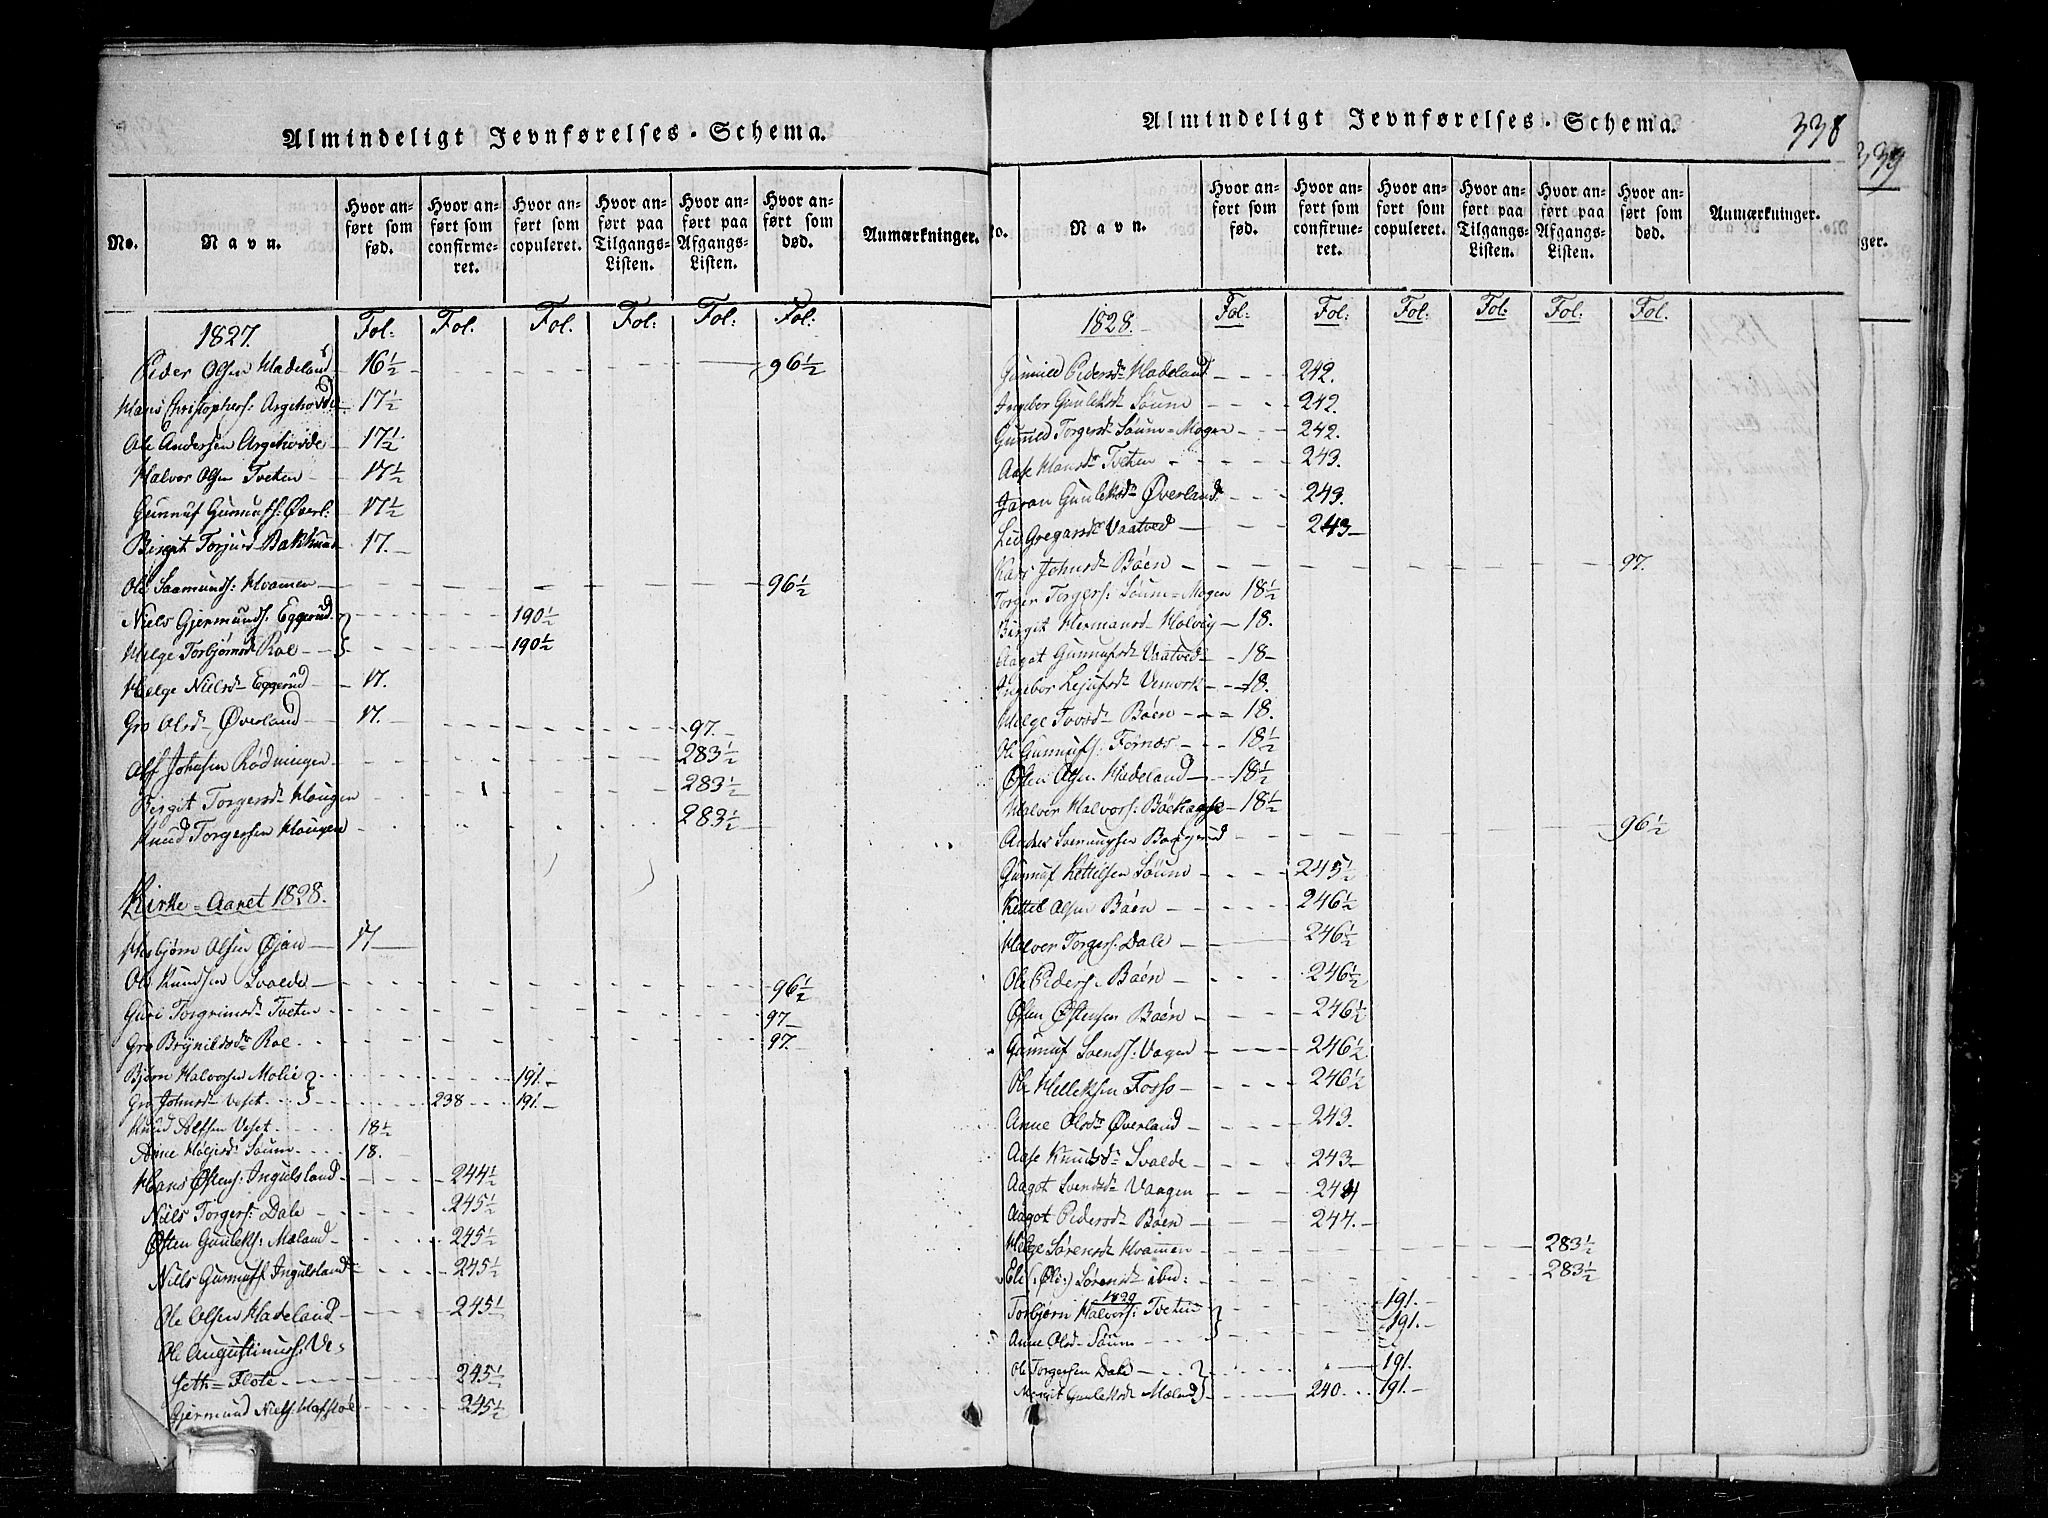 Almindeligt Jevnførelses-Schema.
No. Navn. Hvor anført som fød. Hvor anført som confirmeret. Hvor anført som copuleret. Hvor anført paa Tilgangs-Listen. Hvor anført paa Afgangs-Listen. Hvor anført som død. Anmærkninger.
1827. Fol: Fol. Fol. Fol: Fol: Fol:
Peder Olsen Hadeland 16½ 96½
Hans Christophers: Argehovde 17½
Ole Andersen Argehovde 17½
Halvor Olsen Tveten 17½
Gunnuf Gunnufs: Øverl: 17½
Birgit Torjusd 17.
Ole Saamunds: Kvamen 96½
Niels Gjermunds: Eggerud 190½
Helge Torbjørnsd Roe 190½
Helge Nielsd Eggerud 17.
Gro Olsd Øverland 17. 97.
Alf Johnsen Rødningen 283½
Birgit Torgersd Haugen 283½
Knud Torgersen Haugen 283½
Kirke-Aaret 1828.
Asbjørn Olsen Øjan 17
Ole Knudsen Svalde 96½
Guri Torgrimsd Tveten 97
Gro Brynildsd Roe 97.
Bjørn Halvorsen Molie 191.
Gro Johnsd Veset 238 191.
Knud Alfsen Veset 18½
Anne Høljesd Søum 18.
Hans Østens: Ingulsland 244½
Niels Torgers: Dale 245½
Østen Gunleks: Mæland 245½
Niels Gunnufs Ingulsland 245½
Ole Olsen Hadeland 245½
Ole Augustinuss: Ve-
seth=Flote 245½
Gjermund Niels: 245½
Almindeligt Jevnførelses-Schema.
338
339
No. Navn. Hvor anført som fød. Hvor anført som confirmeret. Hvor anført som copuleret. Hvor anført paa Tilgangs-Listen. Hvor anført paa Afgangs-Listen. Hvor anført som død. Anmærkninger.
1828. Fol: Fol. Fol. Fol. Fol. Fol.
Gunild Pedersd Hadeland 242.
Ingebor Gunleksd Søum 242.
Gunild Torgersd Søum=Mogen 242.
Aase Hansd Tveten 243.
Jøran Gunleksd Øverland 243.
Liv Gregarsd Vaatved 243
Kari Johnsd Bøen 97.
Torger Torgers: Søum=Mogen 18½
Birgit Hermansd Holvig 18.
Aagot Gunnufsd Vaatved 18
Ingebor Lejufsd Vemork 18.
Helge Tovsd Bøen 18.
Ole Gunnufs: Fornes 18½
Østen Olsen Hadeland 18½
Halvor Halvors: Bøehagse 18½
Anders Svenungsen 96½
Gunnuf Kettilsen Søum 245½
Kettel Olsen Bøen 246½
Halvor Torgers: Dale 246½
Ole Peders: Bøen 246½
Østen Østensen Bøen 246½
Gunnuf Svends: Vagen 246½
Ole Helleksen Fosso 246½
Anne Olsd Øverland 243.
Aase Knudsd Svalde 243
Aagot Svendsd Vaagen 244
Aagot Pedersd Bøen 247.
Helge Sørensd Kvamen 283½
Eli (:Øli:) Sørensd ibid: 283½
1829
Torbjørn Halvors: Tveten 191.
Anne Olsd Søum 191.
Ole Torgersen Dale 191.
Margit Gunleksd Mæland 240 191.